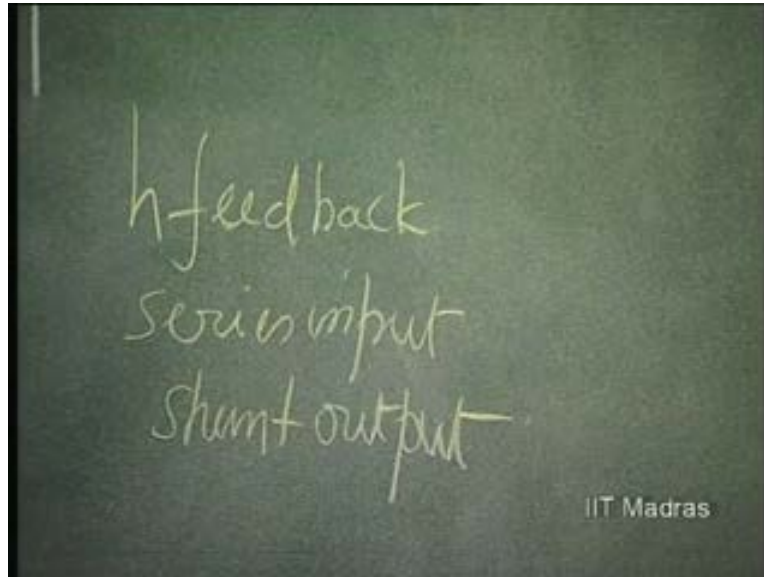 h-feedback
series input
shunt output
IIT Madras